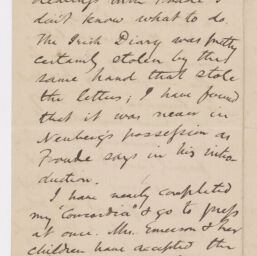 dealings with Froude I
don't know what to do.
The Irish Diary was pretty
certainly stolen by the
same hand that stole
the letters; I have found
that it was never in
Neuberg's possession as
Froude says in his intro-
duction.
I have nearly completed
my "Concordia" & go to press
at once. Mrs. Emerson & her
children have accepted the